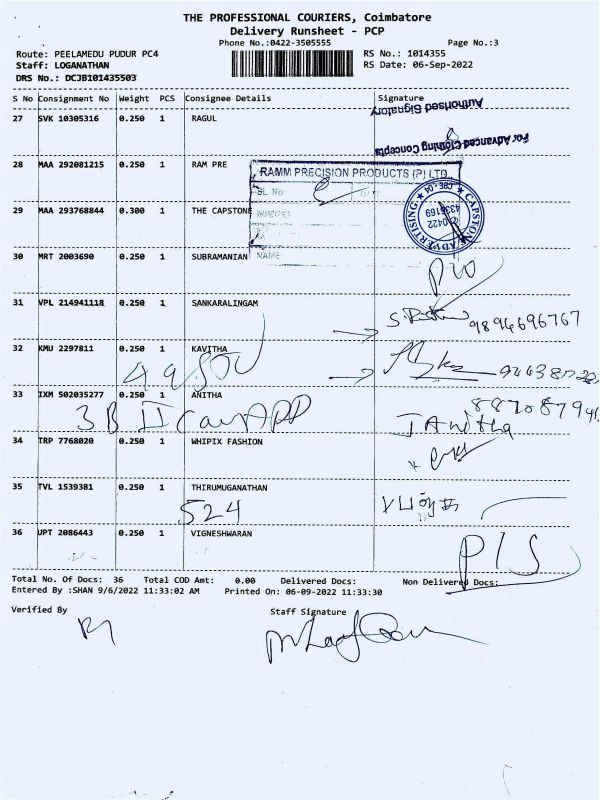 THE PROFESSIONAL COURIERS, Coimbatore
Delivery Runsheet - PCP
Phone No.:0422-3505555 Page No.:3
Route: PEELAMEDU PUDUR PC4 RS No.: 1014355
Staff: LOGANATHAN RS Date: 06-Sep-2022
DRS No.: DCJB101435503
S No Consignment No Weight PCS Consignee Details Signature
27 SVK 10305316 0.250 1 RAGUL
Authorised Signatory
For Advanced Clothing Concepts
28 MAA 292081215 0.250 1 RAM PRE
RAMM PRECISION PRODUCTS (P) LTD.,
SL No
29 MAA 293768844 0.300 1 THE CAPSTONE
CAPSTONE ADVERTISING ★ CBE-04 ★ 0422 4336169
30 MRT 2003690 0.250 1 SUBRAMANIAN
NAME
31 VPL 214941118 0.250 1 SANKARALINGAM
9894696767
32 KMU 2297811 0.250 1 KAVITHA
33 IXM 502035277 0.250 1 ANITHA
3B II
T Anitha
34 TRP 7768020 0.250 1 WHIPIX FASHION
35 TVL 1539381 0.250 1 THIRUMUGANATHAN
524
36 UPT 2086443 0.250 1 VIGNESHWARAN
P/S
Total No. Of Docs: 36 Total COD Amt: 0.00 Delivered Docs: Non Delivered Docs:
Entered By :SHAN 9/6/2022 11:33:02 AM Printed On: 06-09-2022 11:33:30
Verified By Staff Signature